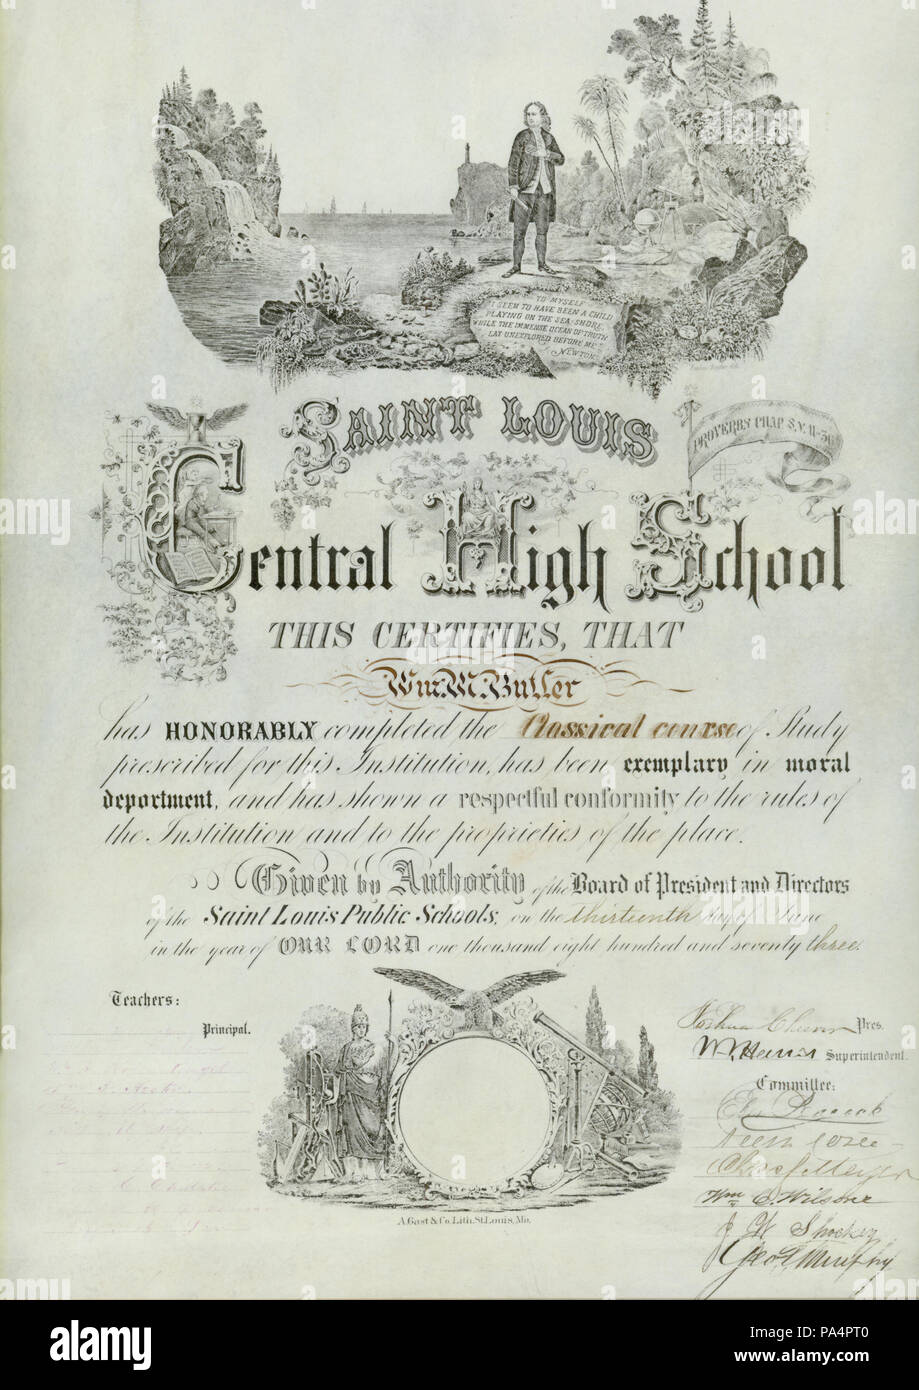 TO MYSELF
I SEEM TO HAVE BEEN A CHILD
PLAYING ON THE SEA-SHORE,
WHILE THE IMMENSE OCEAN OF TRUTH
LAY UNEXPLORED BEFORE ME.
NEWTON.
SAINT LOUIS
PROVERBS CHAP 8, V. 11-36
Central High School
THIS CERTIFIES, THAT
Wm. M. Butler
has HONORABLY completed the Classical course of Study
prescribed for this Institution, has been exemplary in moral
deportment, and has shown a respectful conformity to the rules of
the Institution and to the proprieties of the place.
Given by Authority of the Board of President and Directors
of the Saint Louis Public Schools, on the thirteenth day of June
in the year of OUR LORD one thousand eight hundred and seventy three.
Teachers:
Principal.
Joshua Cheever Pres.
Wm T. Harris Superintendent.
Committee:
Wm C. Wilson
J. W. Shockey
Geo. Murphy
A. Gast & Co. Lith. St. Louis, Mo.
alamy
Image ID: PA4PT0
www.alamy.com